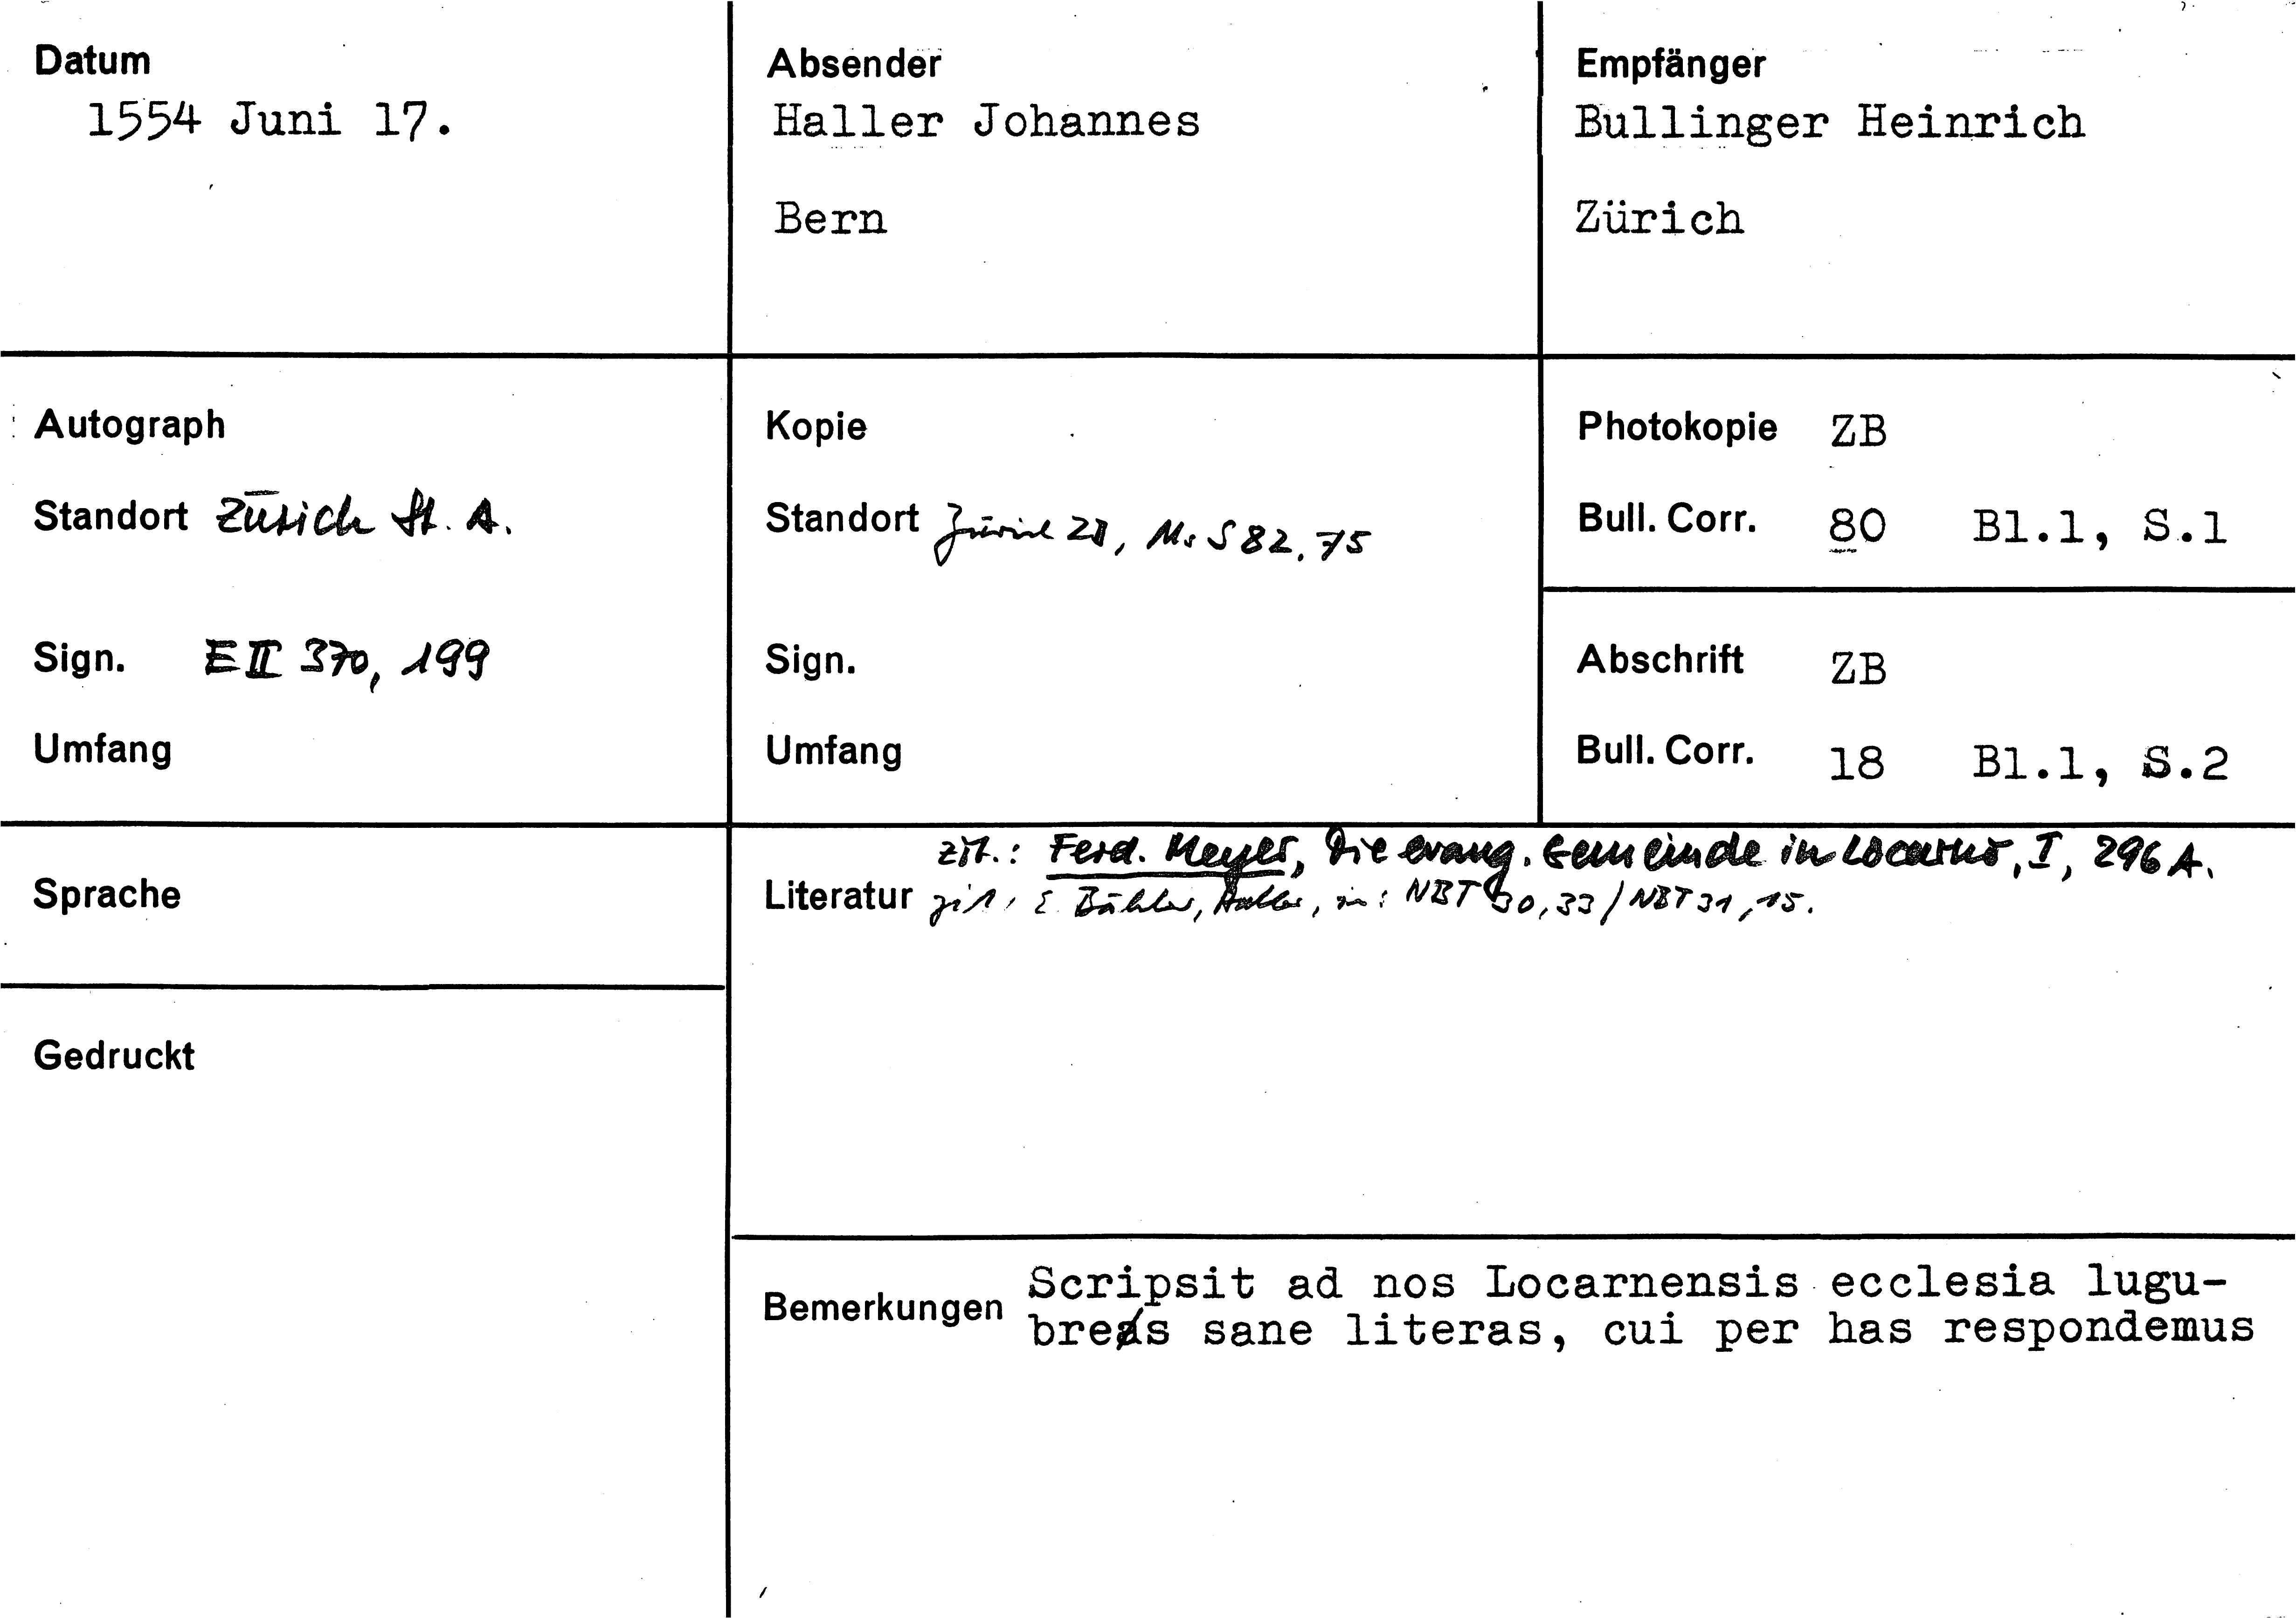 Datum
1554 Juni 17.
Absender
Haller Johannes
Bern
Empfänger
Bullinger Heinrich
Zürich
Autograph
Standort Zürich St. A.
Sign. E II 370, 199
Umfang
Kopie
Standort Zürich ZB, Ms S 82, 75
Sign.
Umfang
Photokopie ZB
Bull. Corr. 80 Bl.1, S.1
Abschrift ZB
Bull. Corr. 18 Bl.1, S.2
Sprache
Gedruckt
zit.: Ferd. Meyer, Die evang. Gemeinde in Locarno, I, 296 A.
Literatur zit. E. Bähler, Haller, in: NBT 30,33/NBT 31,15.
Bemerkungen Scripsit ad nos Locarnensis ecclesia lugu-
bres sane literas, cui per has respondemus